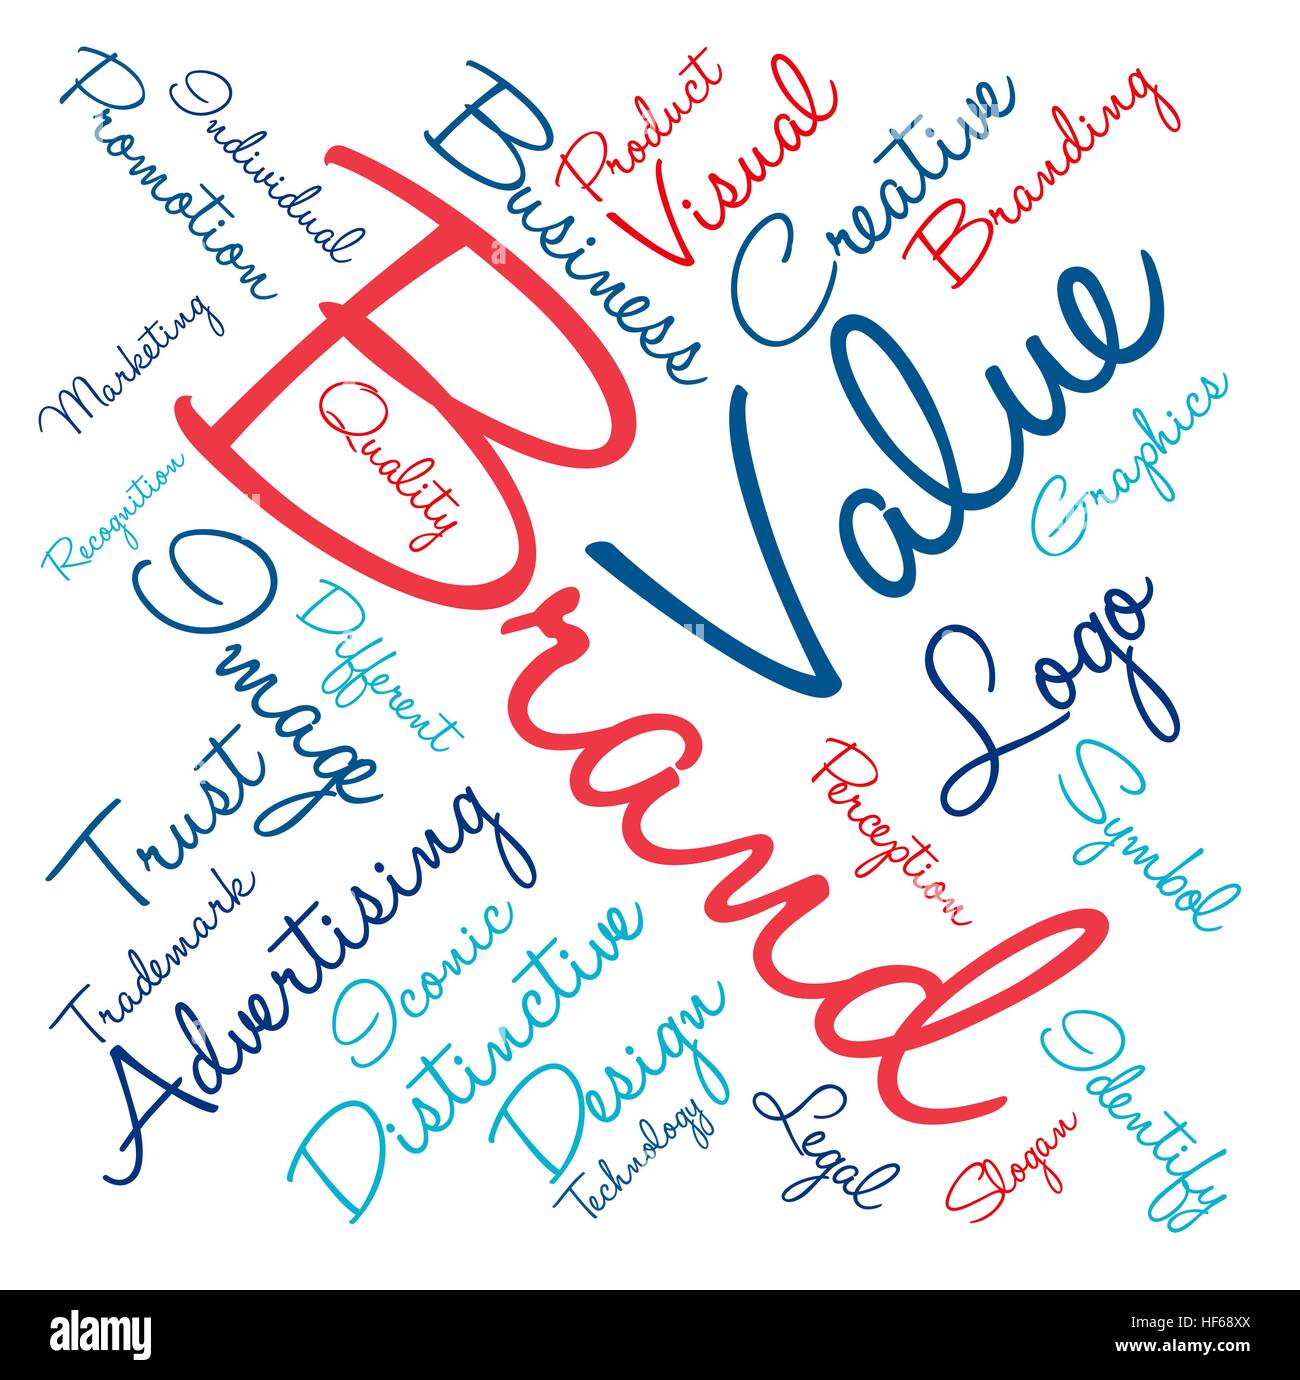 Promotion
Individual
Business
Product
Visual
Creative
Branding
Marketing
Brand
Quality
Value
Graphics
Recognition
Image
Different
Logo
Trust
Perception
Symbol
Trademark
Advertising
Iconic
Distinctive
Design
Technology
Legal
Slogan
Identify
alamy
Image ID: HF68XX
www.alamy.com